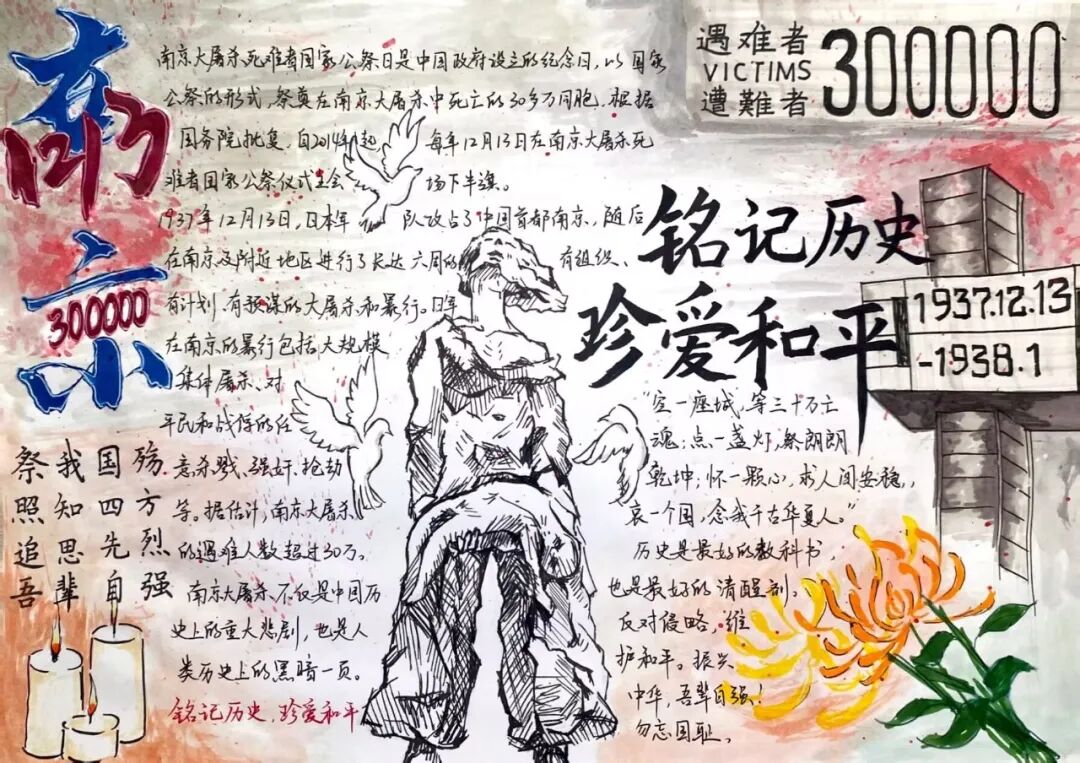 南京
1213
300000
遇难者
VICTIMS
遭難者
300000
南京大屠杀死难者国家公祭日是中国政府设立的纪念日，以国家
公祭的形式，祭奠在南京大屠杀中死亡的30多万同胞。根据
国务院批复，自2014年起 每年12月13日在南京大屠杀死
难者国家公祭仪式主会 场下半旗。
1937年12月13日，日本军 队攻占了中国首都南京，随后
在南京及附近地区进行了长达六周的 有组织、
有计划、有预谋的大屠杀和暴行。日军
在南京的暴行包括大规模
集体屠杀、对
平民和战俘的任
意杀戮、强奸、抢劫
等。据估计，南京大屠杀
的遇难人数超过30万。
南京大屠杀不仅是中国历
史上的重大悲剧，也是人
类历史上的黑暗一页。
铭记历史，珍爱和平
祭我国殇
照知四方
追思先烈
吾辈自强
铭记历史
珍爱和平
1937.12.13
-1938.1
“空一座城，等三十万亡
魂；点一盏灯，祭朗朗
乾坤；怀一颗心，求人间安稳，
哀一个国，念我千古华夏人。”
历史是最好的教科书，
也是最好的清醒剂。
反对侵略，维
护和平。振兴
中华，吾辈自强！
勿忘国耻。